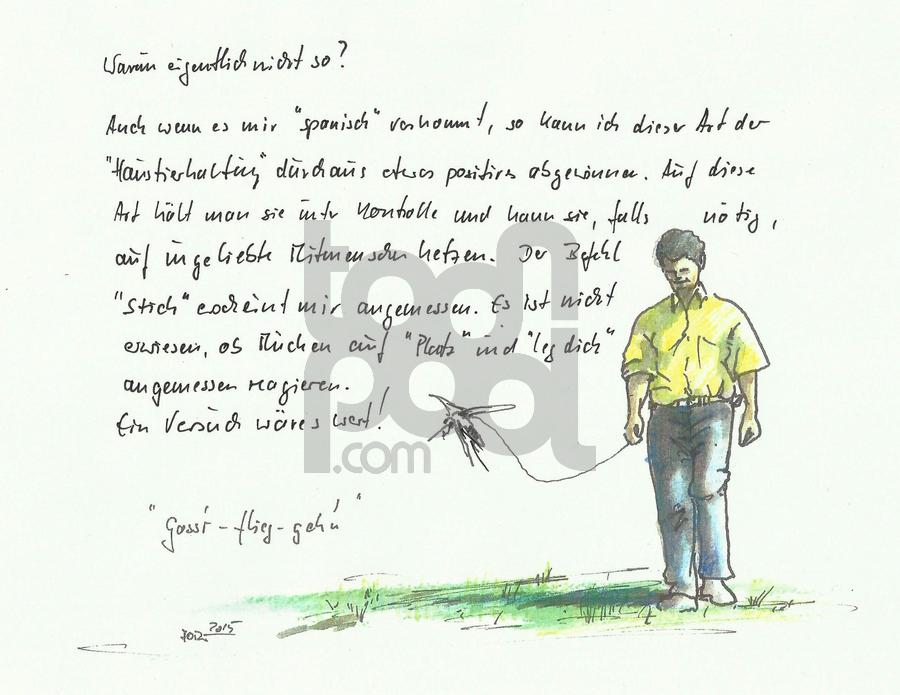 Warum eigentlich nicht so?
Auch wenn es mir "spanisch" vorkommt, so kann ich dieser Art der
"Haustierhaltung" durchaus etwas positives abgewinnen. Auf diese
Art hält man sie unter Kontrolle und kann sie, falls nötig,
auf ungeliebte Mitmenschen hetzen. Der Befehl
"Stich" erscheint mir angemessen. Es ist nicht
erwiesen, ob Mücken auf "Platz" und "leg dich"
angemessen reagieren.
Ein Versuch wäre es wert!
"Gassi-flieg-geh'n"
2015
toonpool
.com